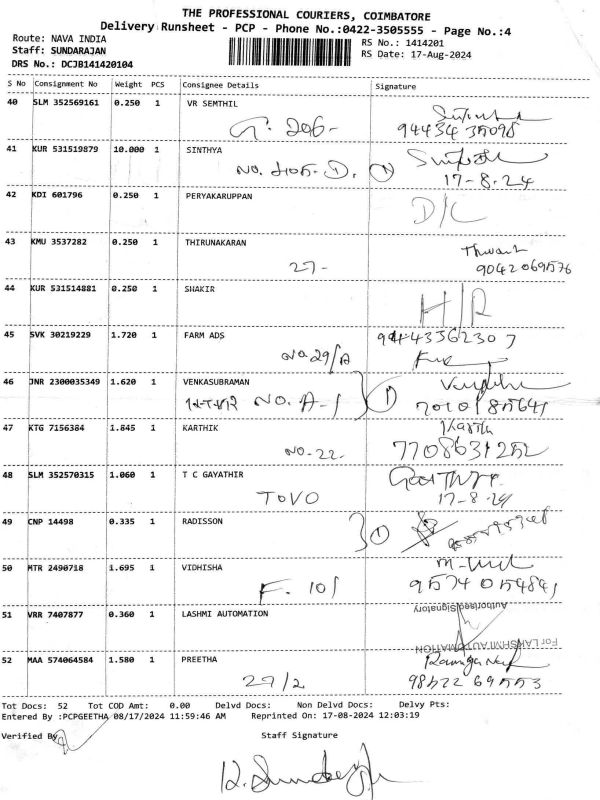 THE PROFESSIONAL COURIERS, COIMBATORE
Delivery Runsheet - PCP - Phone No.:0422-3505555 - Page No.:4
Route: NAVA INDIA
RS No.: 1414201
Staff: SUNDARAJAN
RS Date: 17-Aug-2024
DRS No.: DCJB141420104
S No Consignment No Weight PCS Consignee Details Signature
40 SLM 352569161 0.250 1 VR SEMTHIL
G. 206-
94434 35098
41 KUR 531519879 10.000 1 SINTHYA
No. 
17-8.24
42 KDI 601796 0.250 1 PERYAKARUPPAN
D/C
43 KMU 3537282 0.250 1 THIRUNAKARAN
27-
9042069576
44 KUR 531514881 0.250 1 SHAKIR
H/R
45 SVK 30219229 1.720 1 FARM ADS
No.29/A
46 JNR 2300035349 1.620 1 VENKASUBRAMAN
NO. A-1
47 KTG 7156384 1.845 1 KARTHIK
NO-22.
7708631252
48 SLM 352570315 1.060 1 T C GAYATHIR
TOVO
17-8-24
49 CNP 14498 0.335 1 RADISSON
50 MTR 2490718 1.695 1 VIDHISHA
F. 101
51 VRR 7407877 0.360 1 LASHMI AUTOMATION
Authorised Signatory
For LAKSHMI AUTOMATION
52 MAA 574064584 1.580 1 PREETHA
27/2
98522 69553
Tot Docs: 52 Tot COD Amt: 0.00 Delvd Docs: Non Delvd Docs: Delvy Pts:
Entered By :PCPGEETHA 08/17/2024 11:59:46 AM Reprinted On: 17-08-2024 12:03:19
Verified By Staff Signature